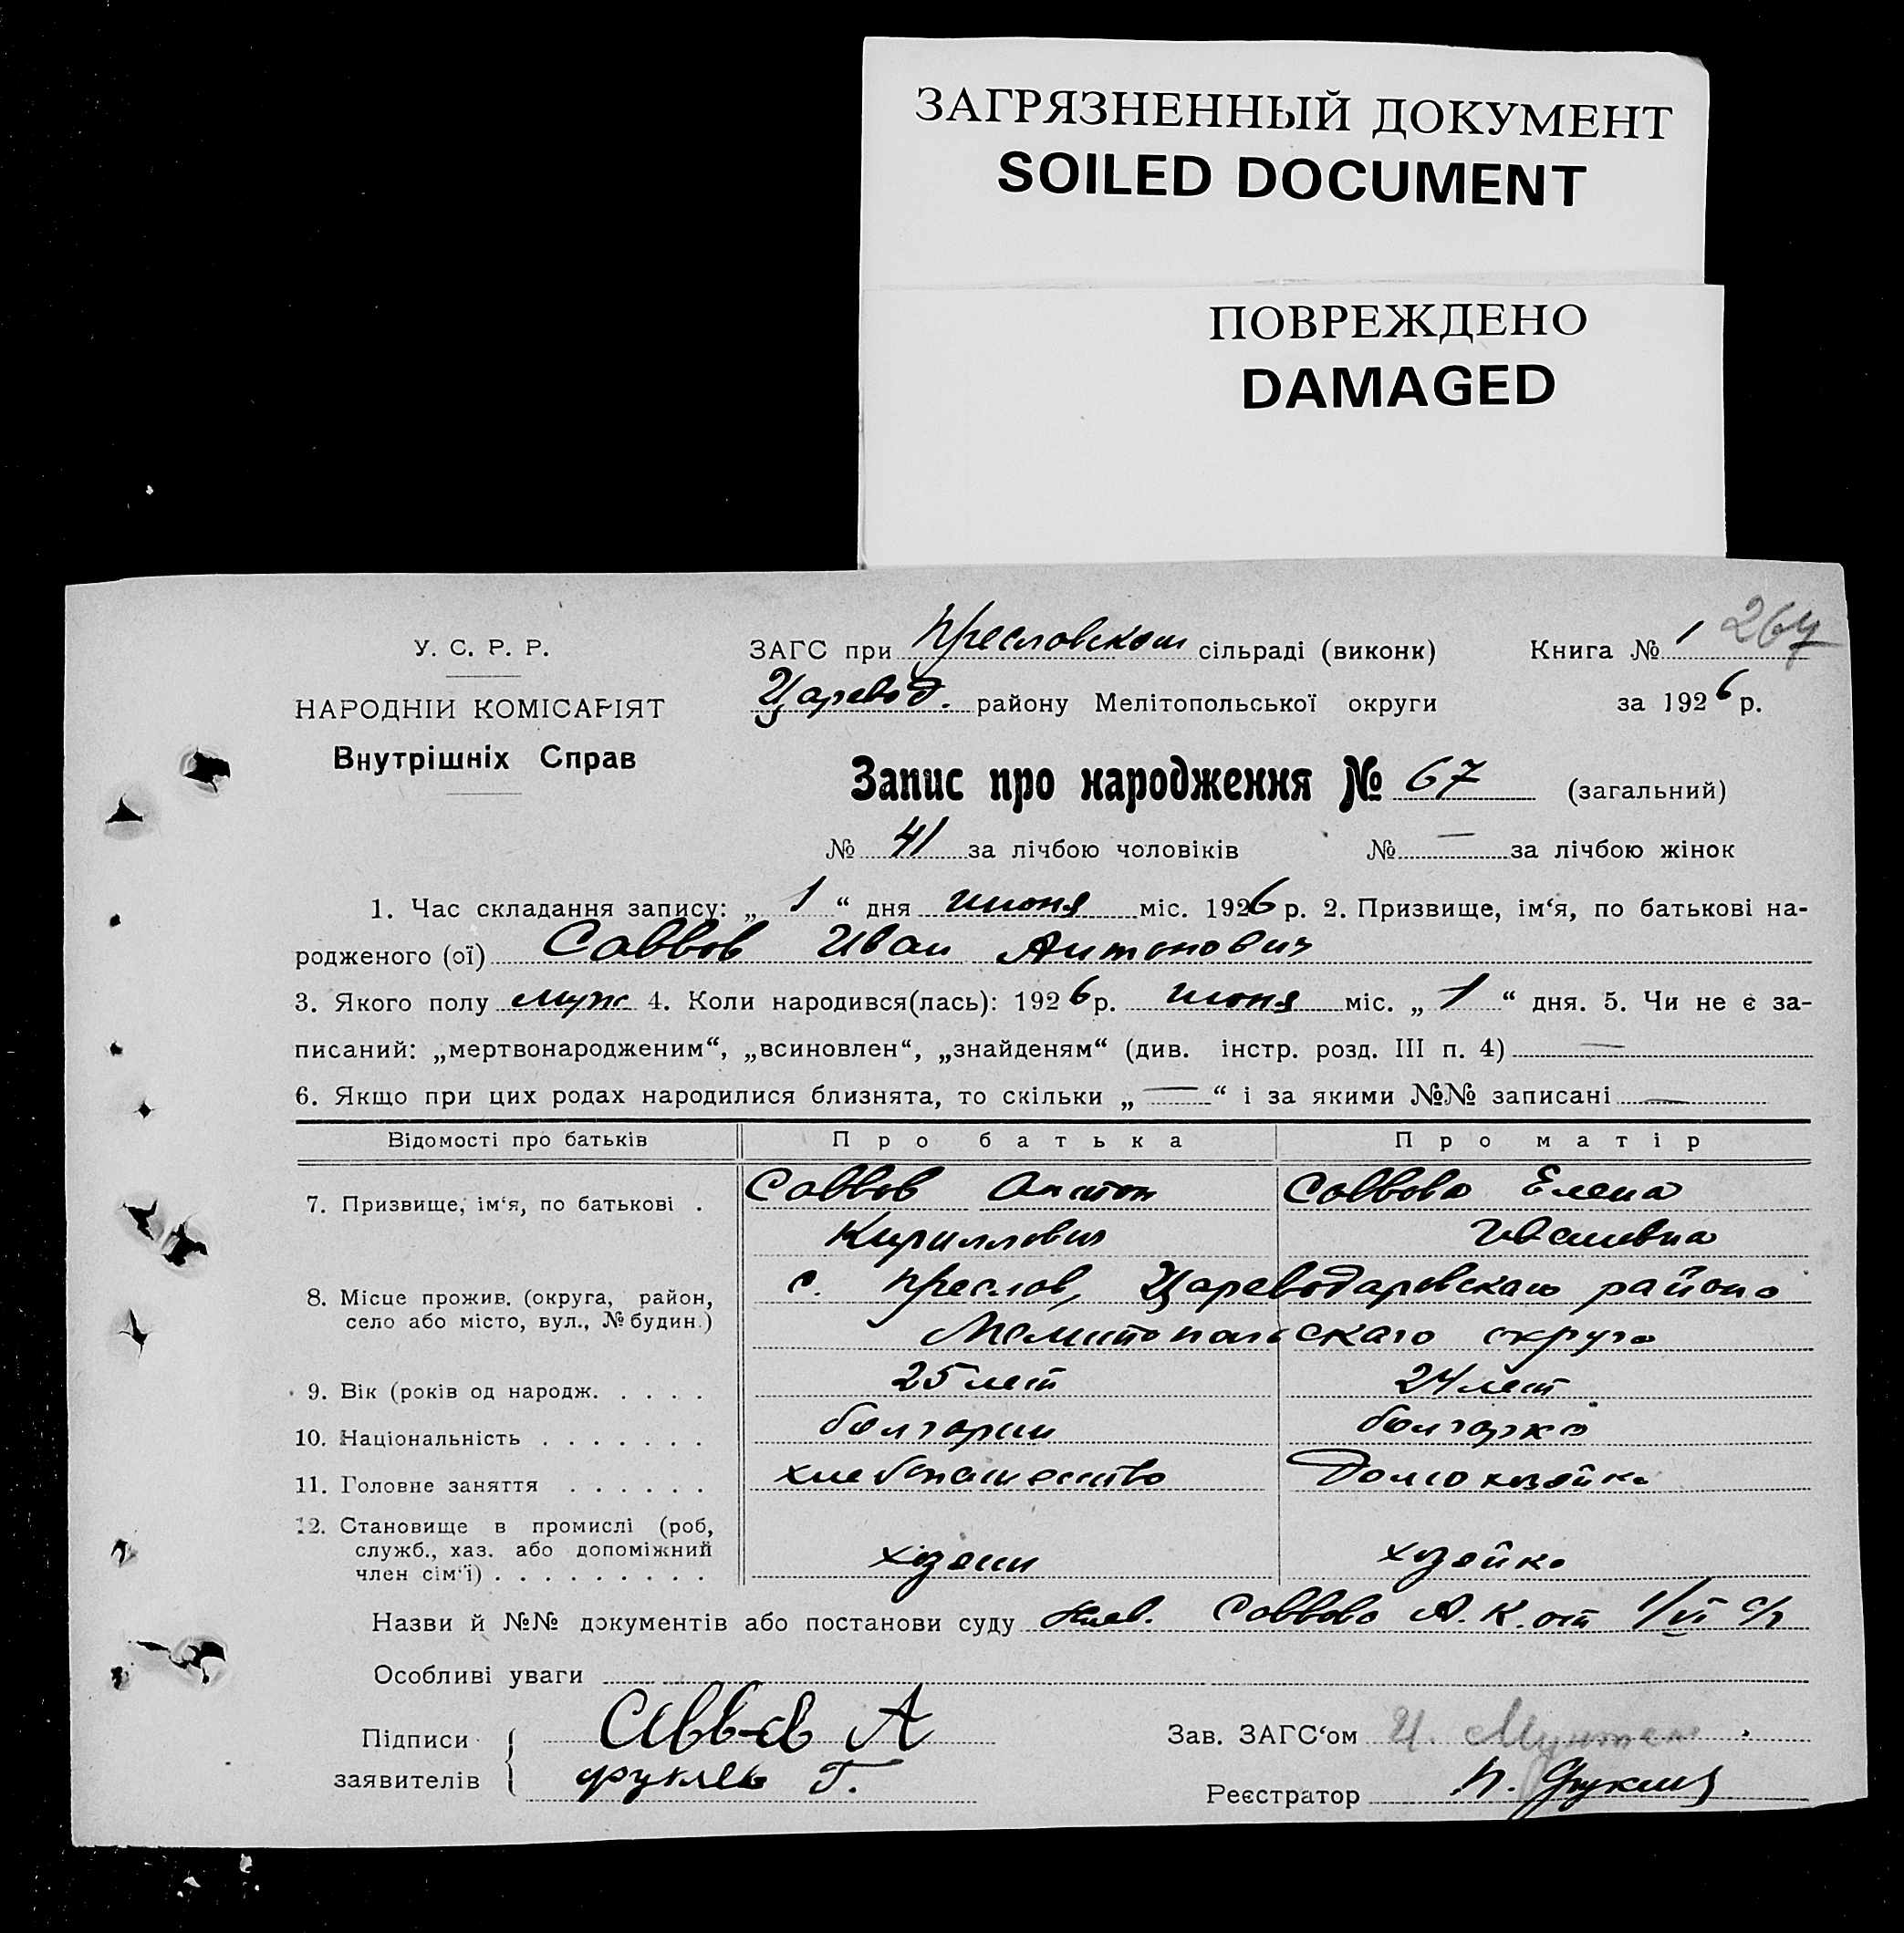 ЗАГРЯЗНЕННЫЙ ДОКУМЕНТ
SOILED DOCUMENT
ПОВРЕЖДЕНО
DAMAGED
У. С. Р. Р.
НАРОДНІЙ КОМІСАРІЯТ
Внутрішніх Справ
ЗАГС при Преславском сільраді (виконк) Книга № 1 264
Царевод. району Мелітопольської округи за 1926 р.
Запис про народження № 67 (загальний)
№ 41 за лічбою чоловіків № — за лічбою жінок
1. Час складання запису: „ 1 “ дня июня міс. 1926 р. 2. Призвище, ім‘я, по батькові на-
родженого (ої) Саввов Иван Антонович
3. Якого полу муж. 4. Коли народився(лась): 1926 р. июня міс. „ 1 “ дня. 5. Чи не є за-
писаний: „мертвонародженим“, „всиновлен“, „знайденям“ (див. інстр. розд. III п. 4) —
6. Якщо при цих родах народилися близнята, то скільки „ — “ і за якими №№ записані —
Відомості про батьків Про батька Про матір
7. Призвище, ім‘я, по батькові . Саввов Антон Саввова Елена
Кириллович Ивановна
8. Місце прожив. (округа, район, село або місто, вул., № будин.) с. Преслов, Цареводаровскаго района
Мелитопольскаго округа
9. Вік (років од народж. . . . . 25 лет 24 лет
10. Національність . . . . . . . болгарин болгарка
11. Головне заняття . . . . . . хлебопашество Домохозяйка
12. Становище в промислі (роб, служб., хаз. або допоміжний член сім‘ї) . . . . . . . . . хозяин хозяйка
Назви й №№ документів або постанови суду Саввова А. К. от 1/VI с/г
Особливі уваги
Підписи заявителів Саввов А
Г.
Зав. ЗАГС‘ом И.
Реєстратор П.